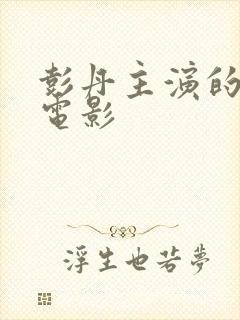 彭丹主演的
電影
浮生也若夢